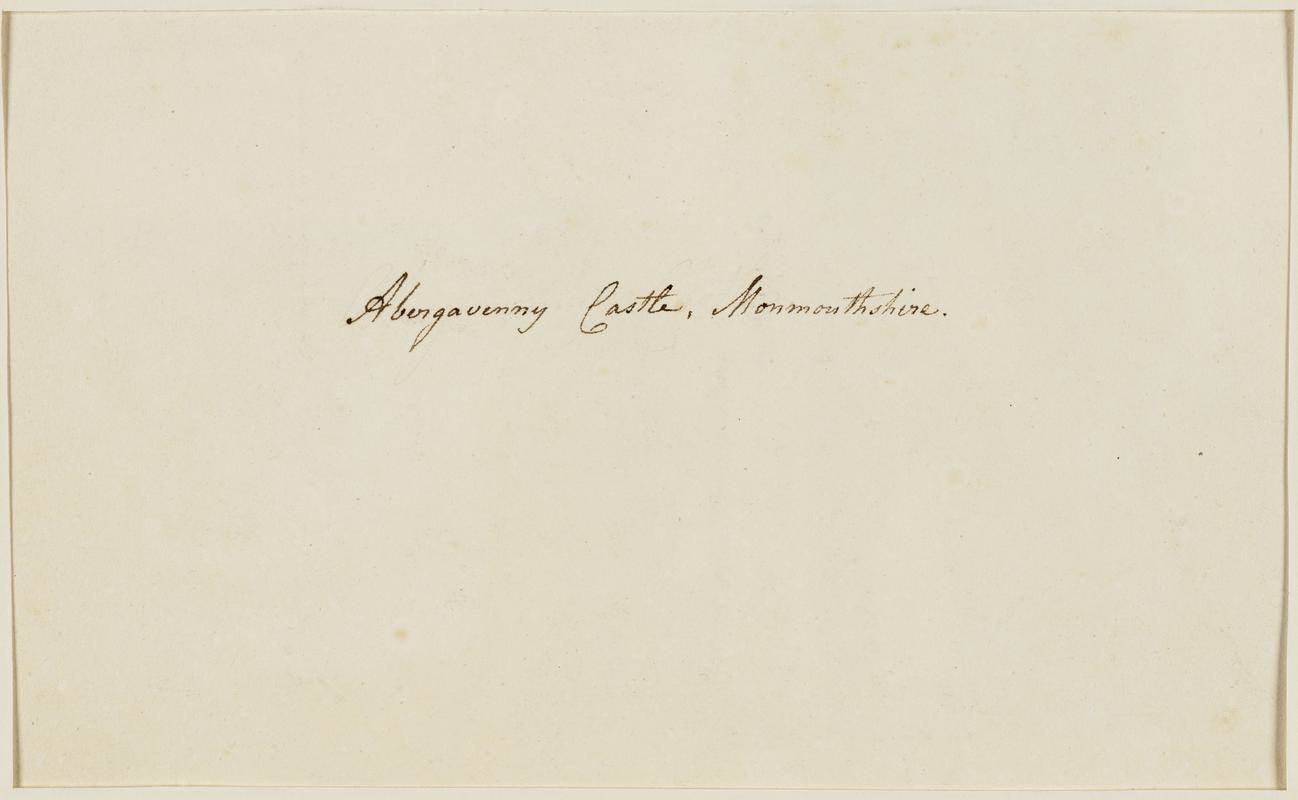 Abergavenny Castle, Monmouthshire.